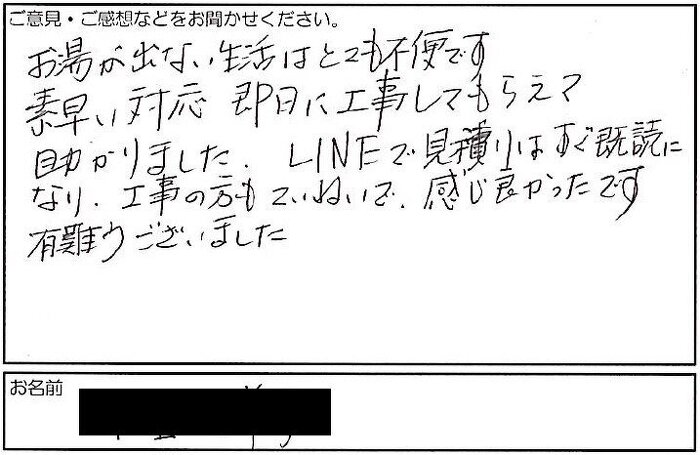 ご意見・ご感想などをお聞かせください。
お湯が出ない生活はとても不便です
素早い対応 即日に工事してもらえて
助かりました. LINEで見積りはすぐ既読に
なり、工事の方もていねいで、感じ良かったです
有難うございました
お名前